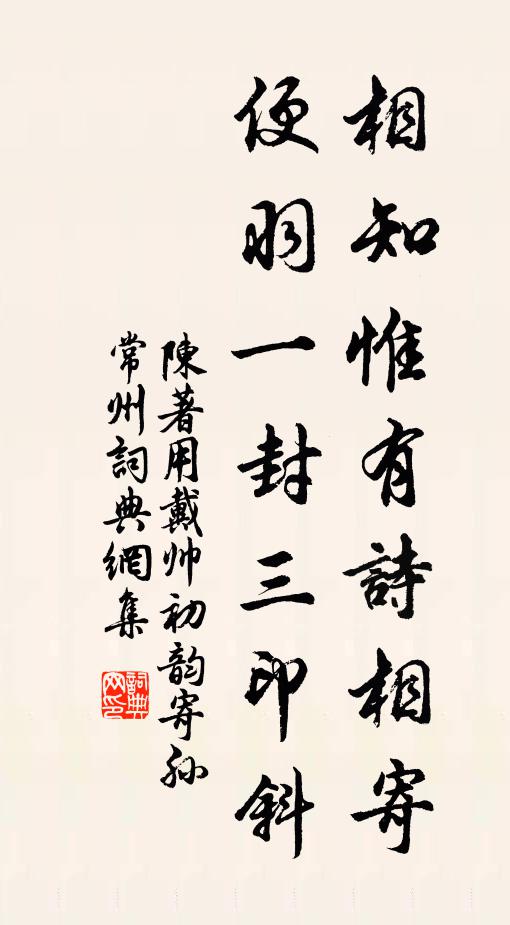 相知惟有詩相寄
便羽一封三印斜
陳著用戴帅初韵寄孙
常州詞典網集
詞典网印